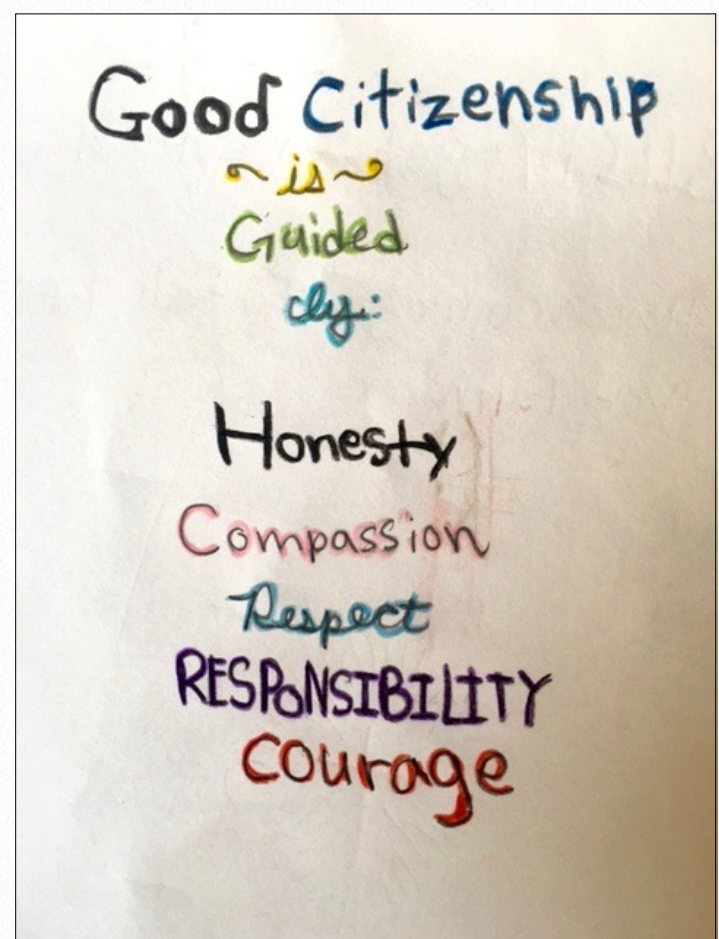 Good Citizenship
~ is ~
Guided
by:
Honesty
Compassion
Respect
RESPONSIBILITY
Courage